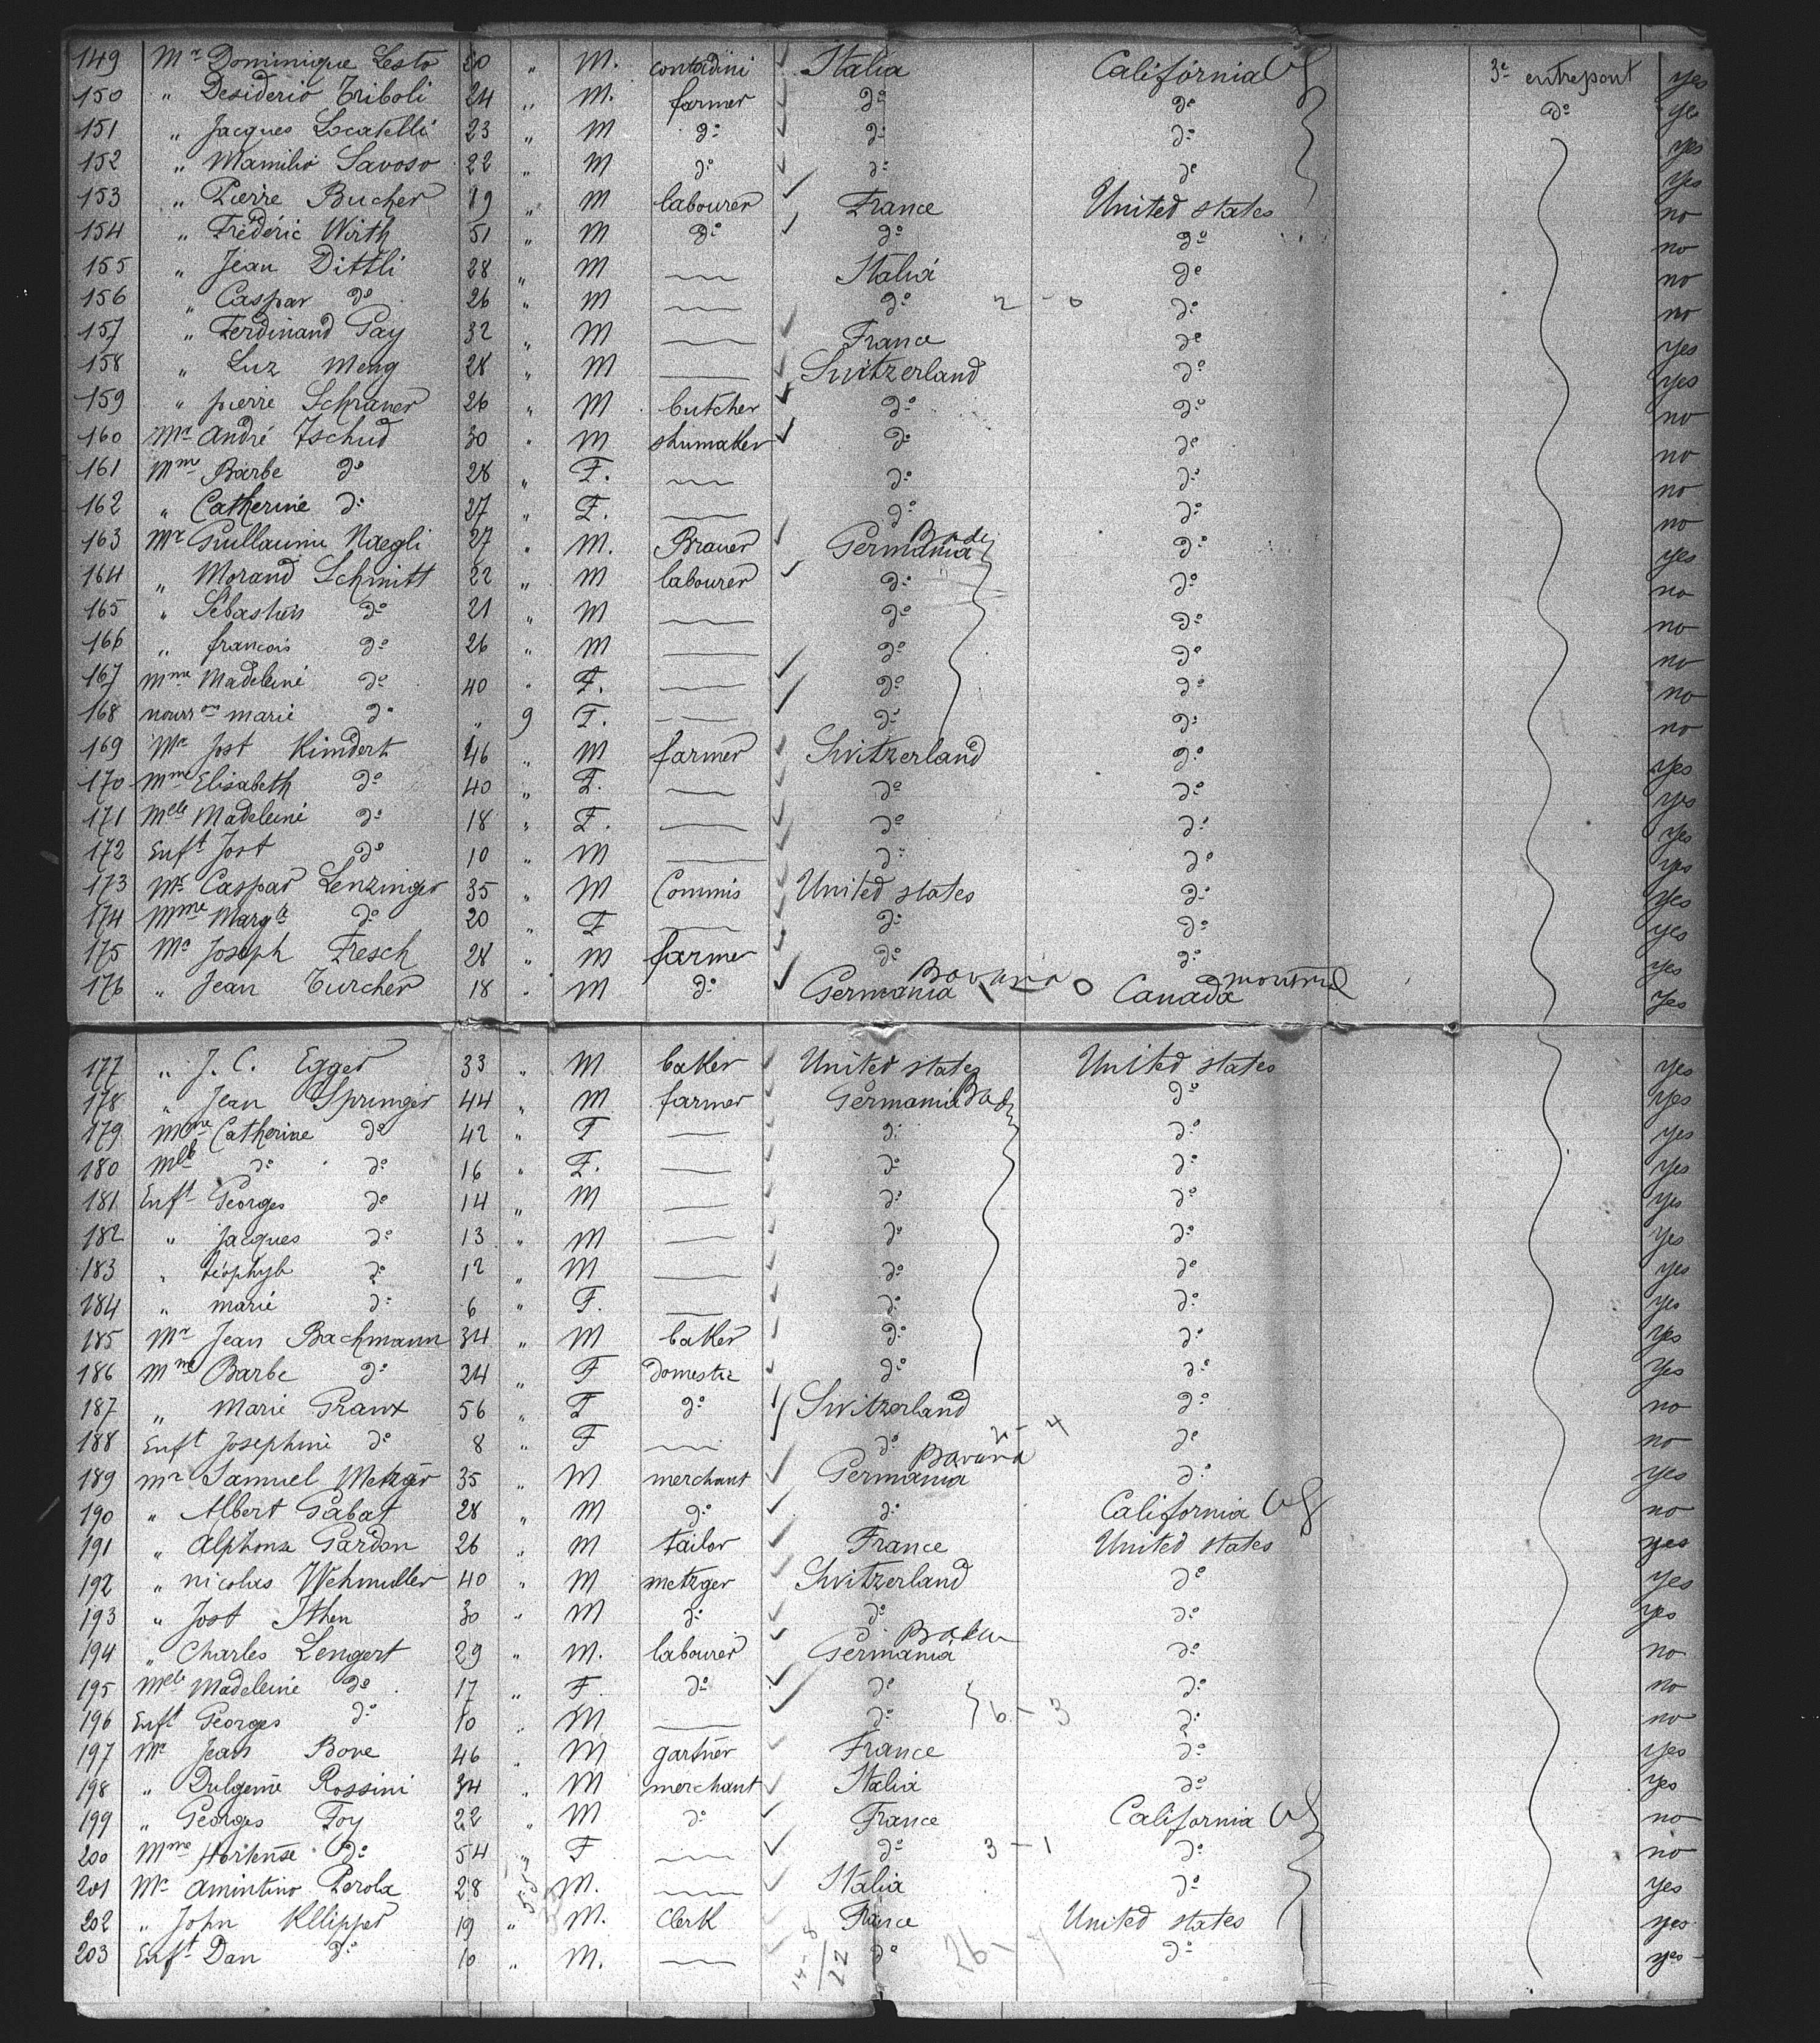 149 Mr Dominique Lesto 20 " M. contadini Italia California 3e entrepont yes
150 " Desiderio Triboli 24 " M. farmer do do do yes
151 " Jacques Locatelli 23 " M do do do yes
152 " Mamilio Savoso 22 " M do do do yes
153 " Pierre Bucher 19 " M labourer France United states no
154 " Frédéric Wirth 51 " M do do do no
155 " Jean Dittli 28 " M Italia do no
156 " Caspar do 26 " M do 2 - 0 do no
157 " Ferdinand Gay 32 " M France do yes
158 " Luz Meng 28 " M Switzerland do yes
159 " pierre Schraner 26 " M butcher do do no
160 Mr André Tschud 30 " M shumaker do do no
161 Mme Barbe do 28 " F. do do no
162 " Catherine do 27 " F. do do no
163 Mr Guillaume Naegli 27 " M. Brauer Germania Bade do yes
164 " Morand Schmitt 22 " M labourer do do no
165 " Sébastien do 21 " M do do no
166 " francois do 26 " M do do no
167 Mme Madeleine do 40 " F. do do no
168 nourron marie do " 9 F. do do no
169 Mr Jost Kimdert 46 " M farmer Switzerland do yes
170 Mme Elisabeth do 40 " F. do do yes
171 Melle Madeleine do 18 " F. do do yes
172 Enft Jost do 10 " M do do yes
173 Mr Caspar Lenzinger 35 " M Commis United states do yes
174 Mme Margte do 20 " F do do yes
175 Mr Joseph Fresch 28 " M farmer do do yes
176 " Jean Turcher 18 " M do Germania Bavaria Canada montreal yes
177 " J. C. Egger 33 " M baker United states United states yes
178 " Jean Springer 44 " M farmer Germania Bade do yes
179 Mme Catherine do 42 " F do do yes
180 Mlle do do 16 " F. do do yes
181 Enft Georges do 14 " M do do yes
182 " Jacques do 13 " M do do yes
183 " téophyle do 12 " M do do yes
184 " marie do 6 " F. do do yes
185 Mr Jean Bachmann 34 " M baker do do yes
186 Mme Barbe do 24 " F domestic do do yes
187 " Marie Granx 56 " F do Switzerland do no
188 Enft Josephine do 8 " F do 2 - 4 do no
189 Mr Samuel Metzger 35 " M merchant Germania Bavaria do yes
190 " Albert Gabat 28 " M do do California no
191 " Alphonse Gardon 26 " M tailor France United states yes
192 " nicolas Wehmuller 40 " M metzger Switzerland do yes
193 " Jost Ithen 30 " M do do do yes
194 " Charles Lengert 29 " M. labourer Germania Baden do no
195 Melle Madeleine do 17 " F. do do do no
196 Enft Georges do 10 " M do 6 - 3 do no
197 Mr Jean Bove 46 " M gartner France do yes
198 " Dulgenie Rossini 34 " M merchant Italia do yes
199 " Georges Foy 22 " M do France California no
200 Mme Hortense do 54 " F do 3 - 1 do no
201 Mr Amintino Perola 28 " M. Italia do yes
202 " John Kllipper 19 " M. Clerk France United states yes
203 Enft Dan do 10 " M. do do yes
14 - 8
22
26 -